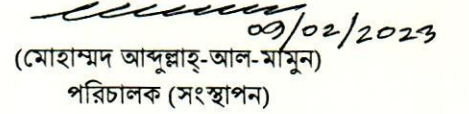 09/02/2023
(মোহাম্মদ আব্দুল্লাহ্-আল-মামুন)
পরিচালক (সংস্থাপন)